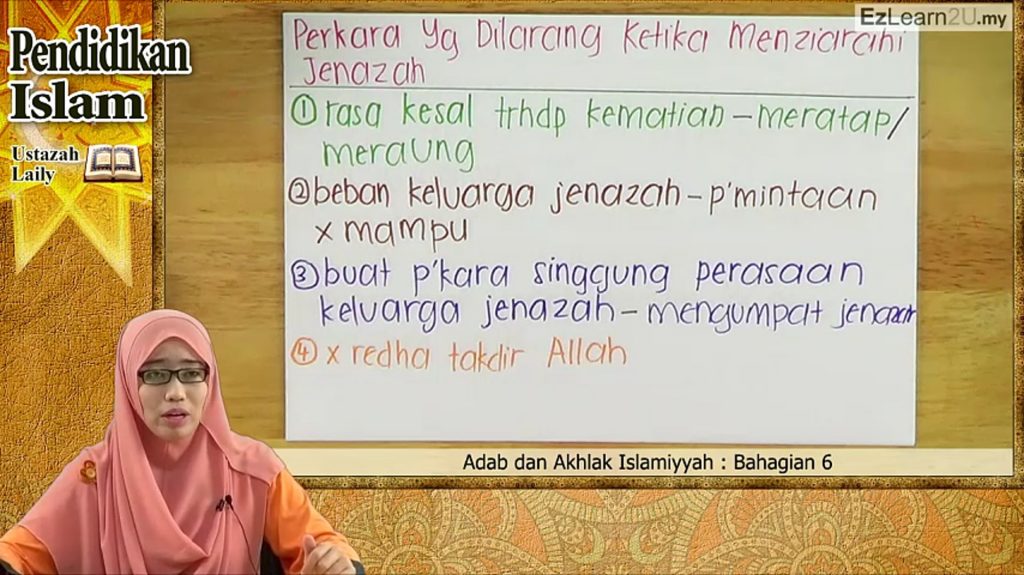 Pendidikan
Islam
Ustazah
Laily
EzLearn2U.my
Perkara Yg Dilarang Ketika Menziarahi
Jenazah
① rasa kesal trhdp kematian – meratap/
meraung
② beban keluarga jenazah – p'mintaan
x mampu
③ buat p'kara singgung perasaan
keluarga jenazah – mengumpat jenazah
④ x redha takdir Allah
Adab dan Akhlak Islamiyyah : Bahagian 6